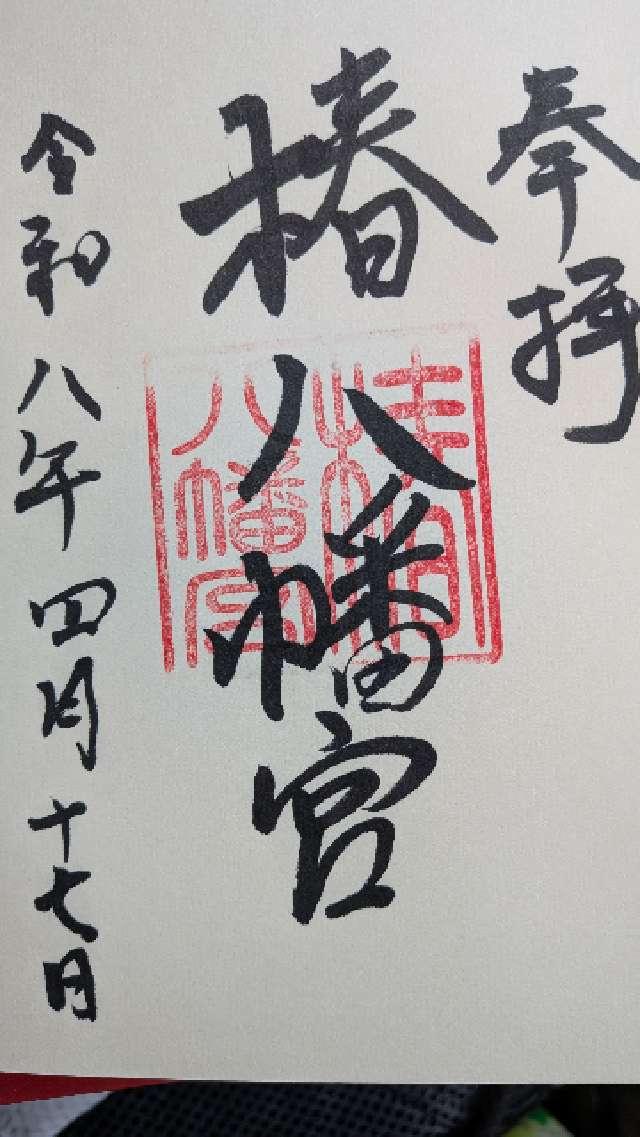 奉拝
椿八幡宮
椿八幡宮
令和八年四月十七日